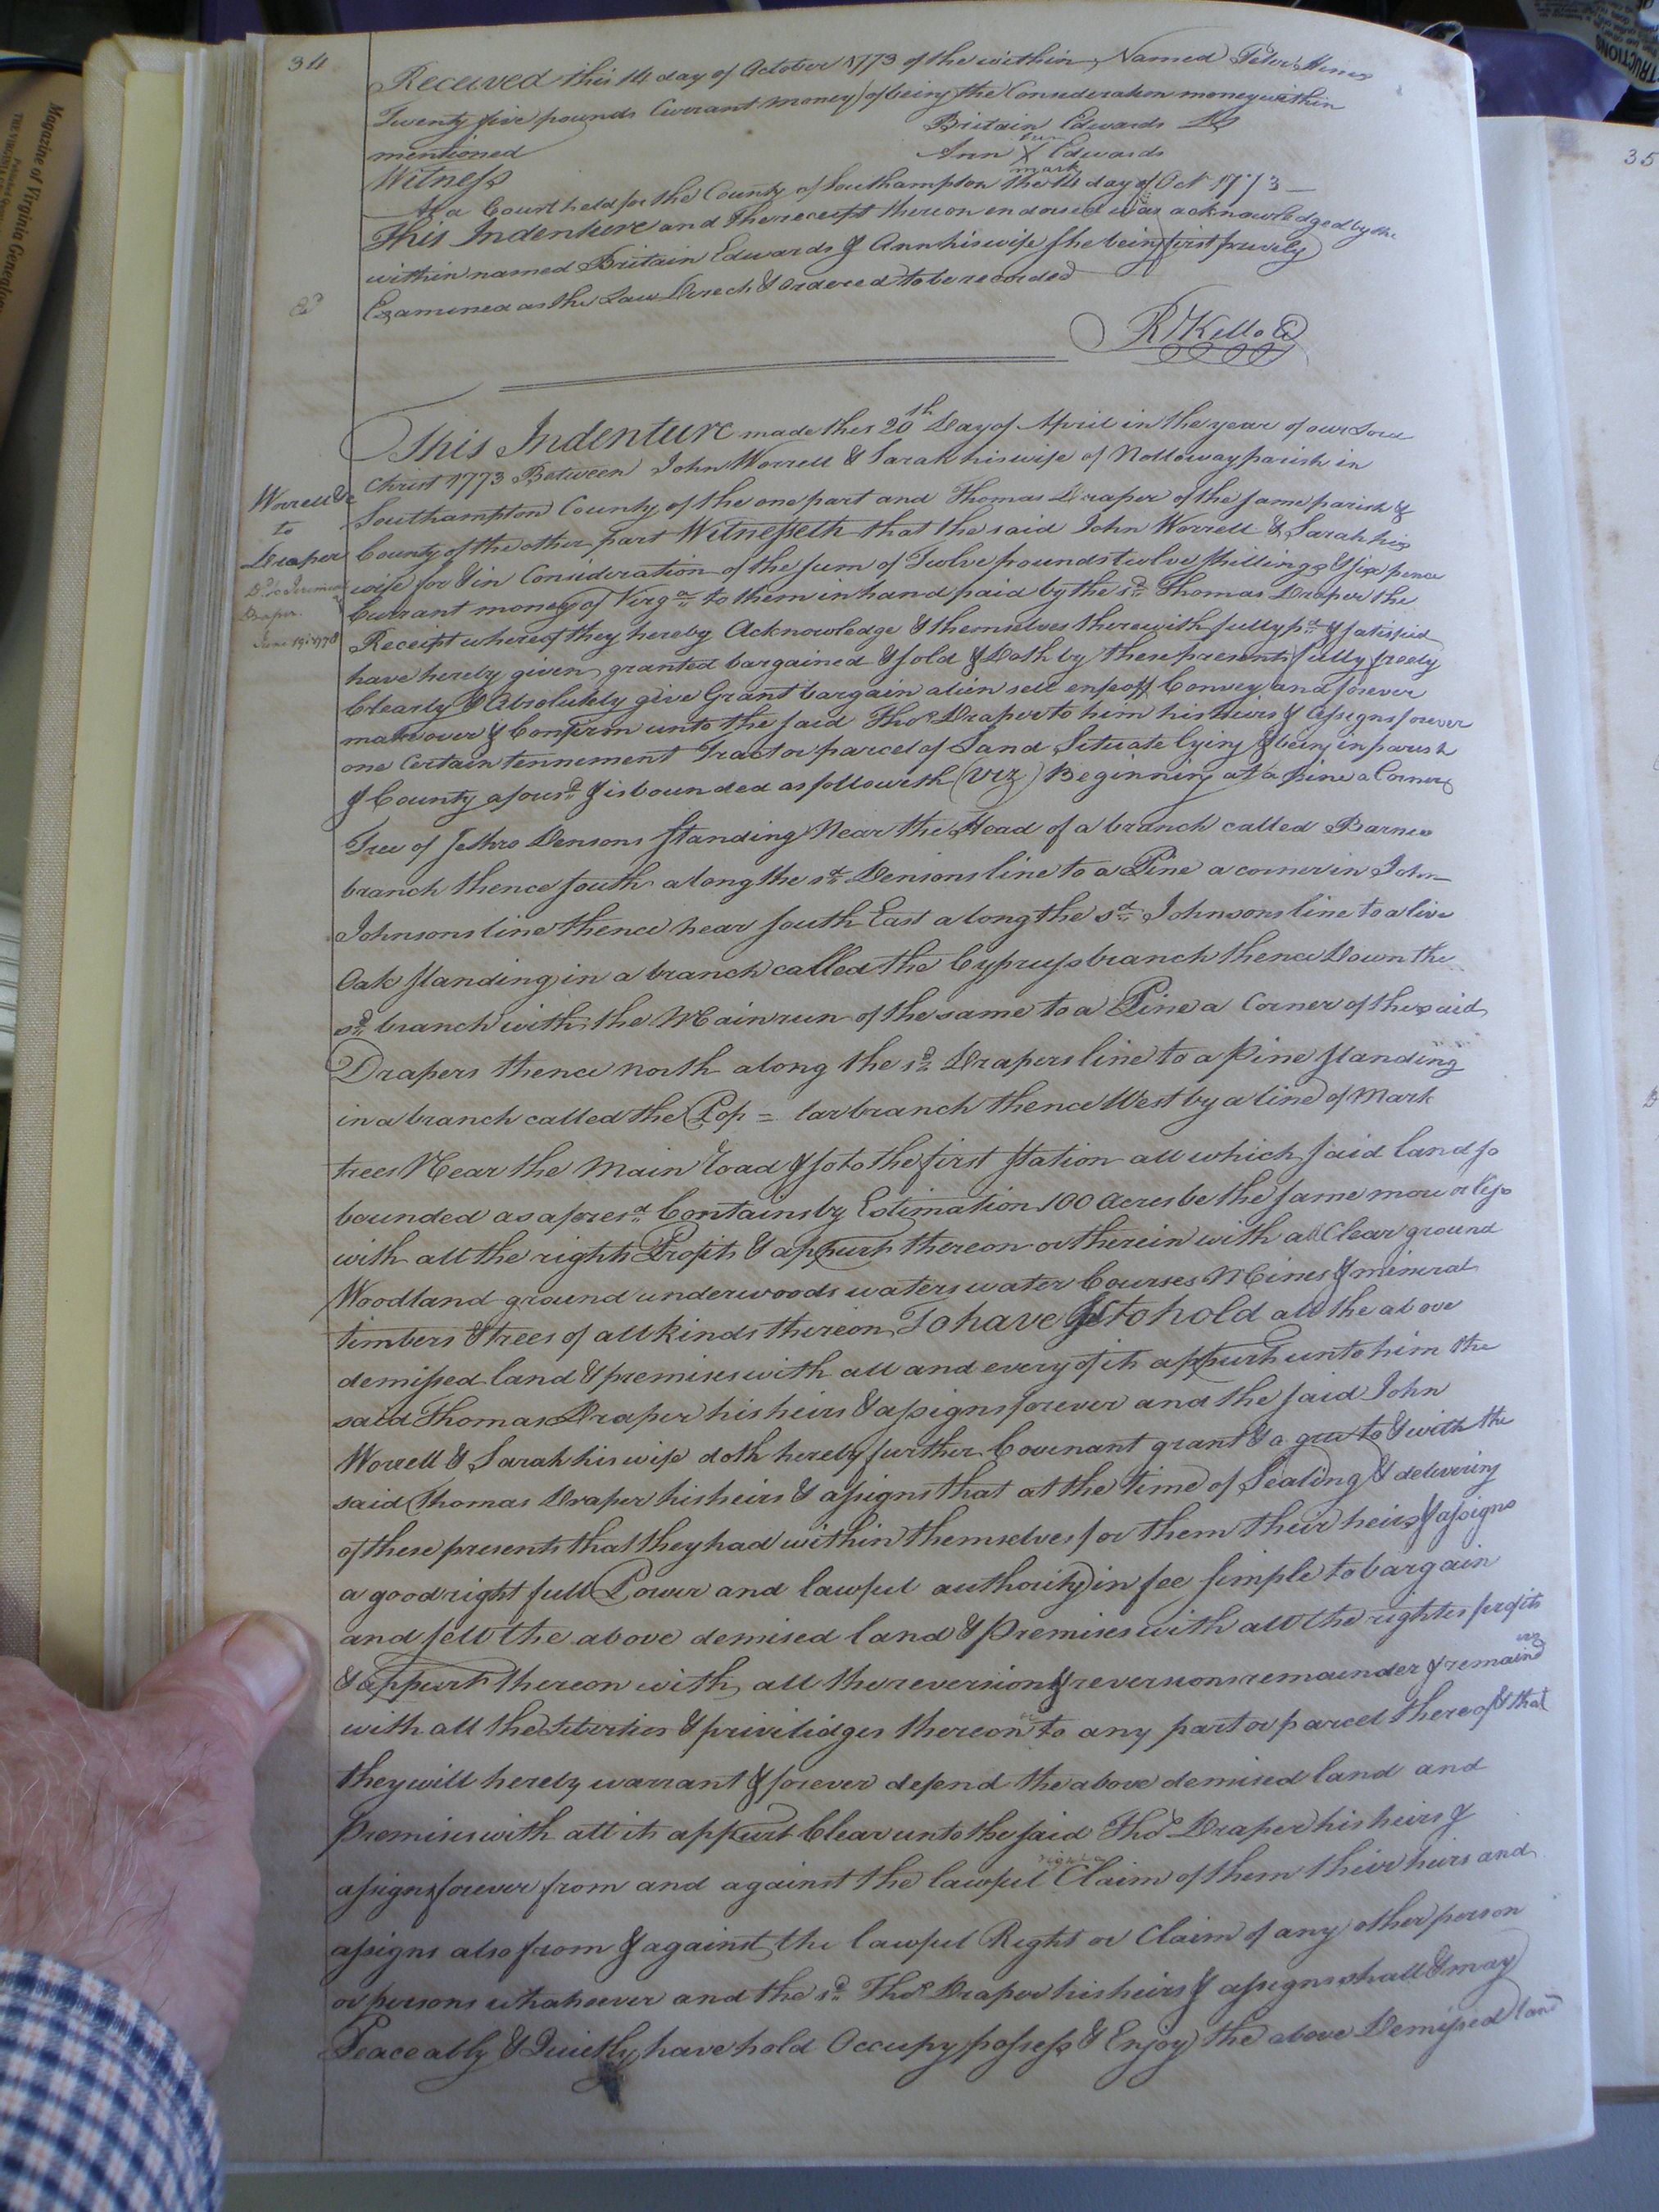 34
Received this 14 day of October 1773 of the within Named Peter Hines
Twenty five pounds Currant money of being the Consideration money within
mentioned
Britain Edwards LS
Ann X Edwards
her
mark
Witness
At a Court held for the County of Southampton the 14 day of Oct 1773
This Indenture and the receipt thereon endorsed was acknowledged by the
within named Britain Edwards & Ann his wife she being first privily
Examined as the Law Direct & ordered to be recorded
Ed
R Kello C
This Indenture made this 20th Day of April in the year of our Lord
Christ 1773 Between John Worrell & Sarah his wife of Nottoway parish in
Worrell &c
to
Draper
Dd to Jeremiah
Draper.
June 19: 1778
Southampton County of the one part and Thomas Draper of the same parish &
County of the other part Witnesseth that the said John Worrell & Sarah his
wife for & in Consideration of the sum of Twelve pounds twelve shillings & six pence
Currant money of Virga to them in hand paid by the sd Thomas Draper the
Receipt whereof they hereby Acknowledge & themselves therewith fully pd & satisfied
have hereby given granted bargained & sold & Doth by these presents fully freely
Clearly & Absolutely give Grant bargain alien sell enfeoff Convey and forever
make over & Confirm unto the said Thos Draper to him his heirs & assigns forever
one Certain tennement Tract or parcel of Land Situate lying & being in parish
& County aforesd & is bounded as followeth (viz) Beginning at a pine a Corner
Tree of Jethro Densons standing Near the Head of a branch called Barnes
branch thence south along the sd Densons line to a Pine a corner in John
Johnsons line thence near south East along the sd Johnsons line to a live
Oak standing in a branch called the Cypruss branch thence Down the
sd branch with the Main run of the same to a Pine a Corner of the said
Drapers thence north along the sd Drapers line to a pine standing
in a branch called the Pop = lar branch thence West by a line of Mark
trees Near the main road & so to the first station all which said land so
bounded as aforesd Contains by Estimation 100 Acres be the same more or less
with all the rights Profits & appurts thereon or therein with all Clear ground
Woodland ground underwoods waters water Courses Mines & mineral
timbers & trees of all kinds thereon To have & to hold all the above
demissed land & premises with all and every of its appurts unto him the
said Thomas Draper his heirs & assigns forever and the said John
Worrell & Sarah his wife doth hereby further Covenant grant & agree to & with the
said Thomas Draper his heirs & assigns that at the time of Sealing & delivering
of these presents that they had within themselves for them their heirs & assigns
a good right full Power and lawful authority in fee simple to bargain
and sell the above demised land & Premises with all the rights profits
& appurts thereon with all the reversion & reversions remainder & remaind
ers
with all the Liberties & priviledges thereon to any part or parcel thereof & that
they will hereby warrant & forever defend the above demised land and
Premises with all its appurt Clear unto the said Thos Draper his heirs &
right or
assigns forever from and against the lawful Claim of them their heirs and
assigns also from & against the lawful Right or Claim of any other person
or persons whatsoever and the sd Thos Draper his heirs & assigns shall & may
Peaceably & Quietly have hold Occupy possess & Enjoy the above Demissed land
35
Magazine of Virginia Genealogy